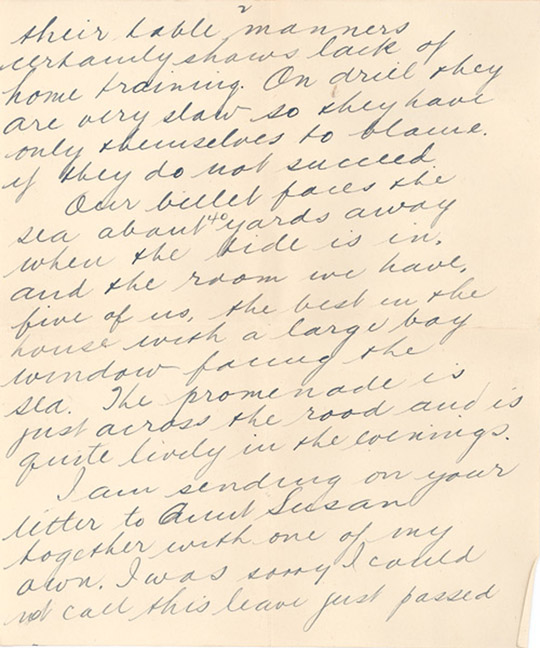 2
their table manners
certainly shows lack of
home training. On drill they
are very slow so they have
only themselves to blame.
if they do not succeed.
Our billet faces the
sea about 40 yards away
when the tide is in,
and the room we have,
five of us, the best in the
house with a large bay
window facing the
sea. The promenade is
just across the road and is
quite lively in the evenings.
I am sending on your
letter to Aunt Susan
together with one of my
own. I was sorry I could
not call this leave just passed